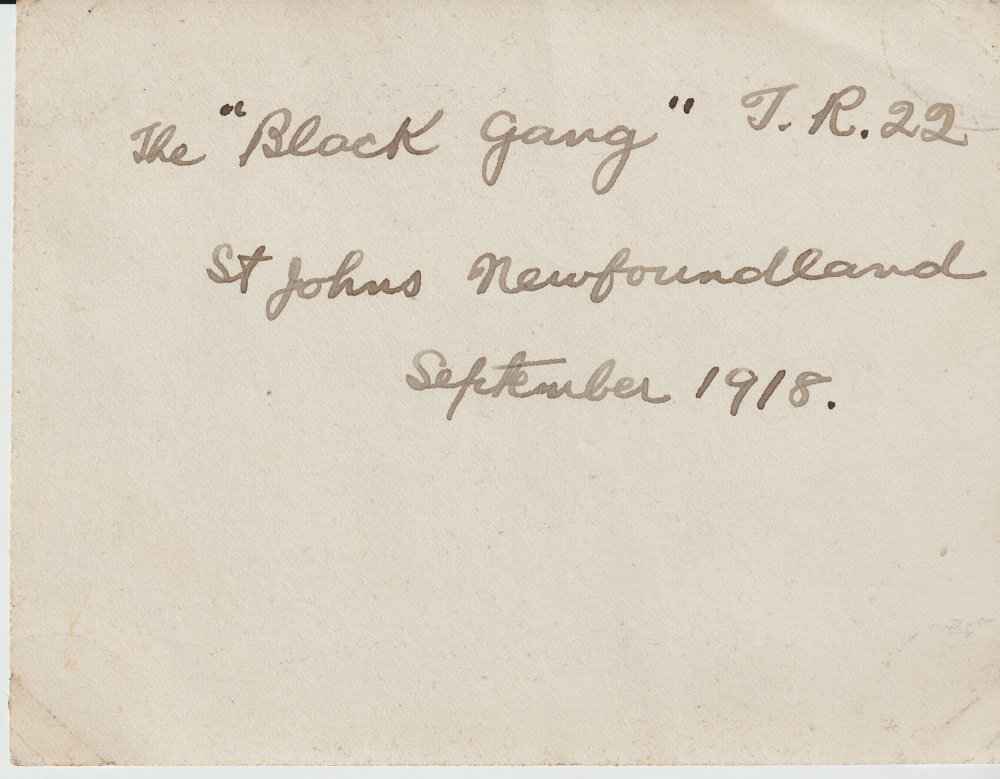 The "Black Gang" T.R.22
St Johns Newfoundland
September 1918.